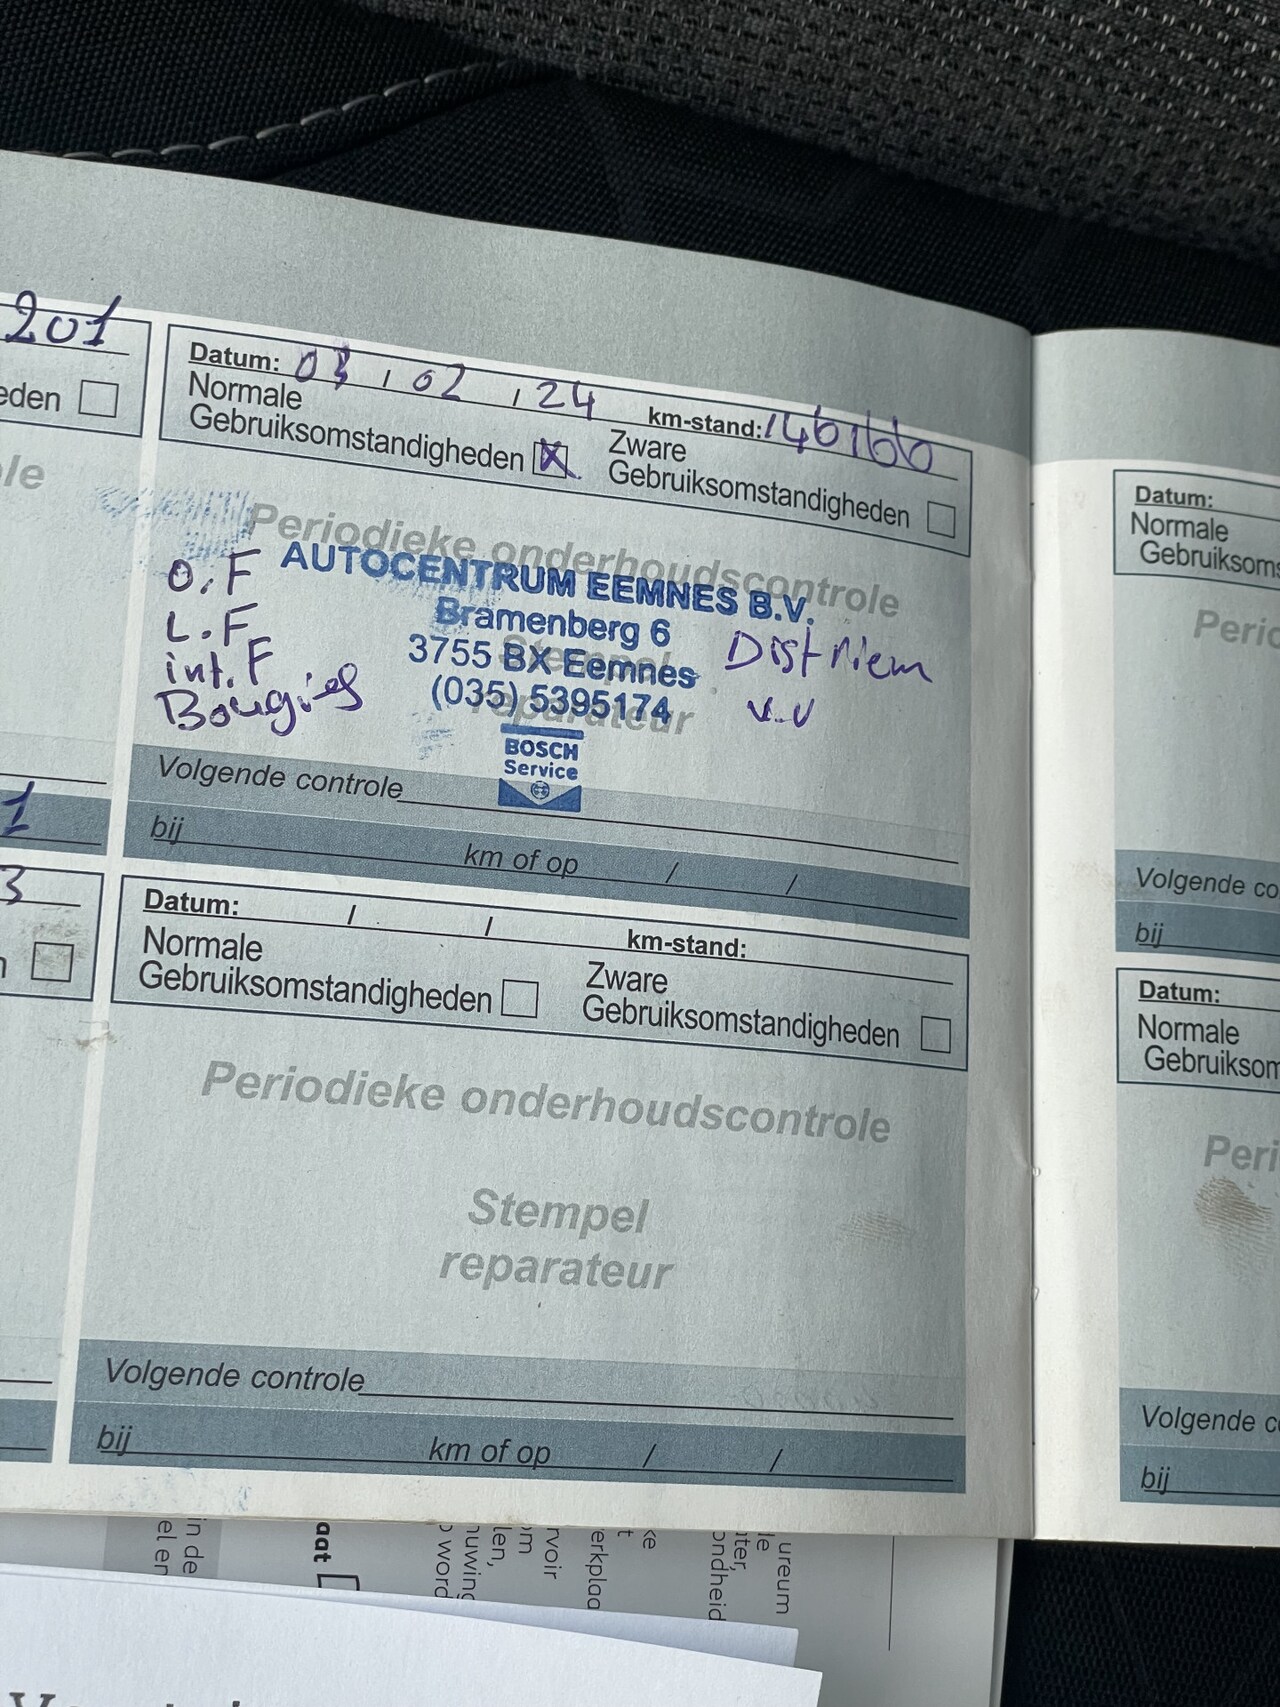 201
eden
le
1
3
n
Datum: 03 / 02 / 24 km-stand: 146166
Normale
Gebruiksomstandigheden X
Zware
Gebruiksomstandigheden
Periodieke onderhoudscontrole
Stempel
reparateur
AUTOCENTRUM EEMNES B.V.
Bramenberg 6
3755 BX Eemnes
(035) 5395174
BOSCH
Service
O.F
L.F
int.F
Bougies
Distriem
v.v
Volgende controle
bij km of op / /
Datum: / / km-stand:
Normale
Gebruiksomstandigheden
Zware
Gebruiksomstandigheden
Periodieke onderhoudscontrole
Stempel
reparateur
Volgende controle
bij km of op / /
Datum:
Normale
Gebruiksoms
Perio
Volgende co
bij
Datum:
Normale
Gebruiksom
Peri
Volgende c
bij
ureum
le
ter,
ondheid
ke
t
erkplaa
rvoir
om
len,
nuwing
word
aat
in de
el en